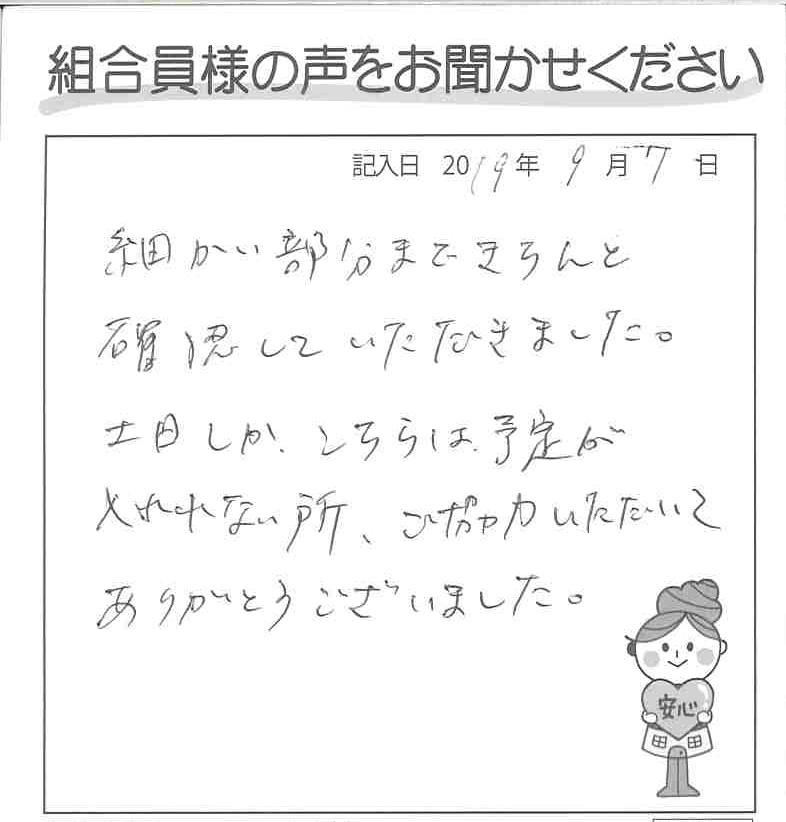 組合員様の声をお聞かせください
記入日 2019年 9月 7日
細かい部分まできちんと
確認していただきました。
土日しか、こちらは、予定が
入れれない所、ご協力いただいて
ありがとうございました。
安心